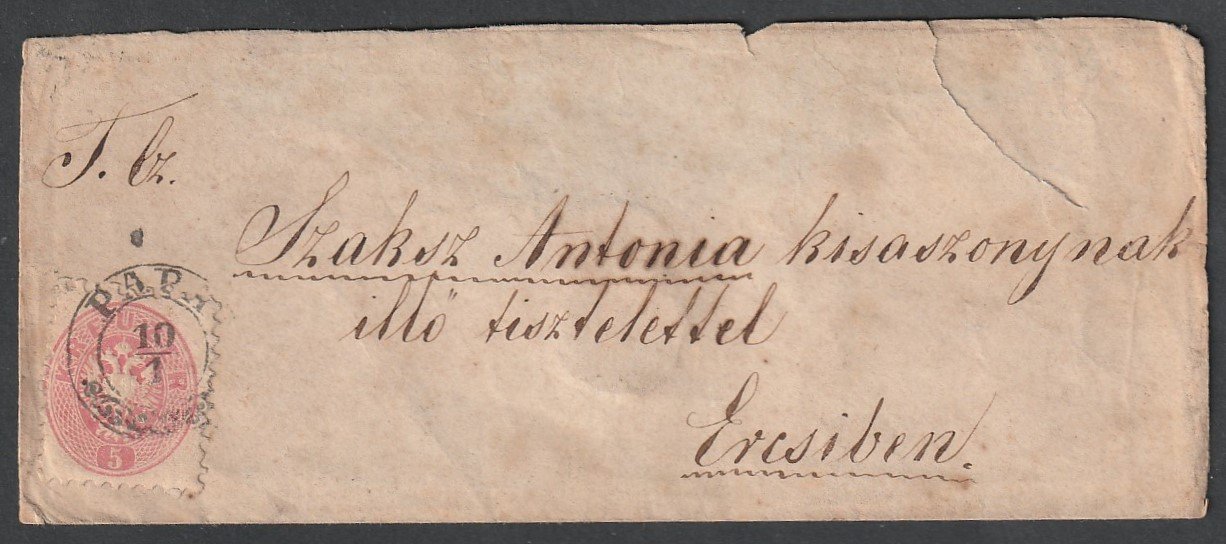 T. cz.
Szaksz Antonia kisaszonynak
illő tisztelettel
Ercsiben.
PAPA
10
1
5